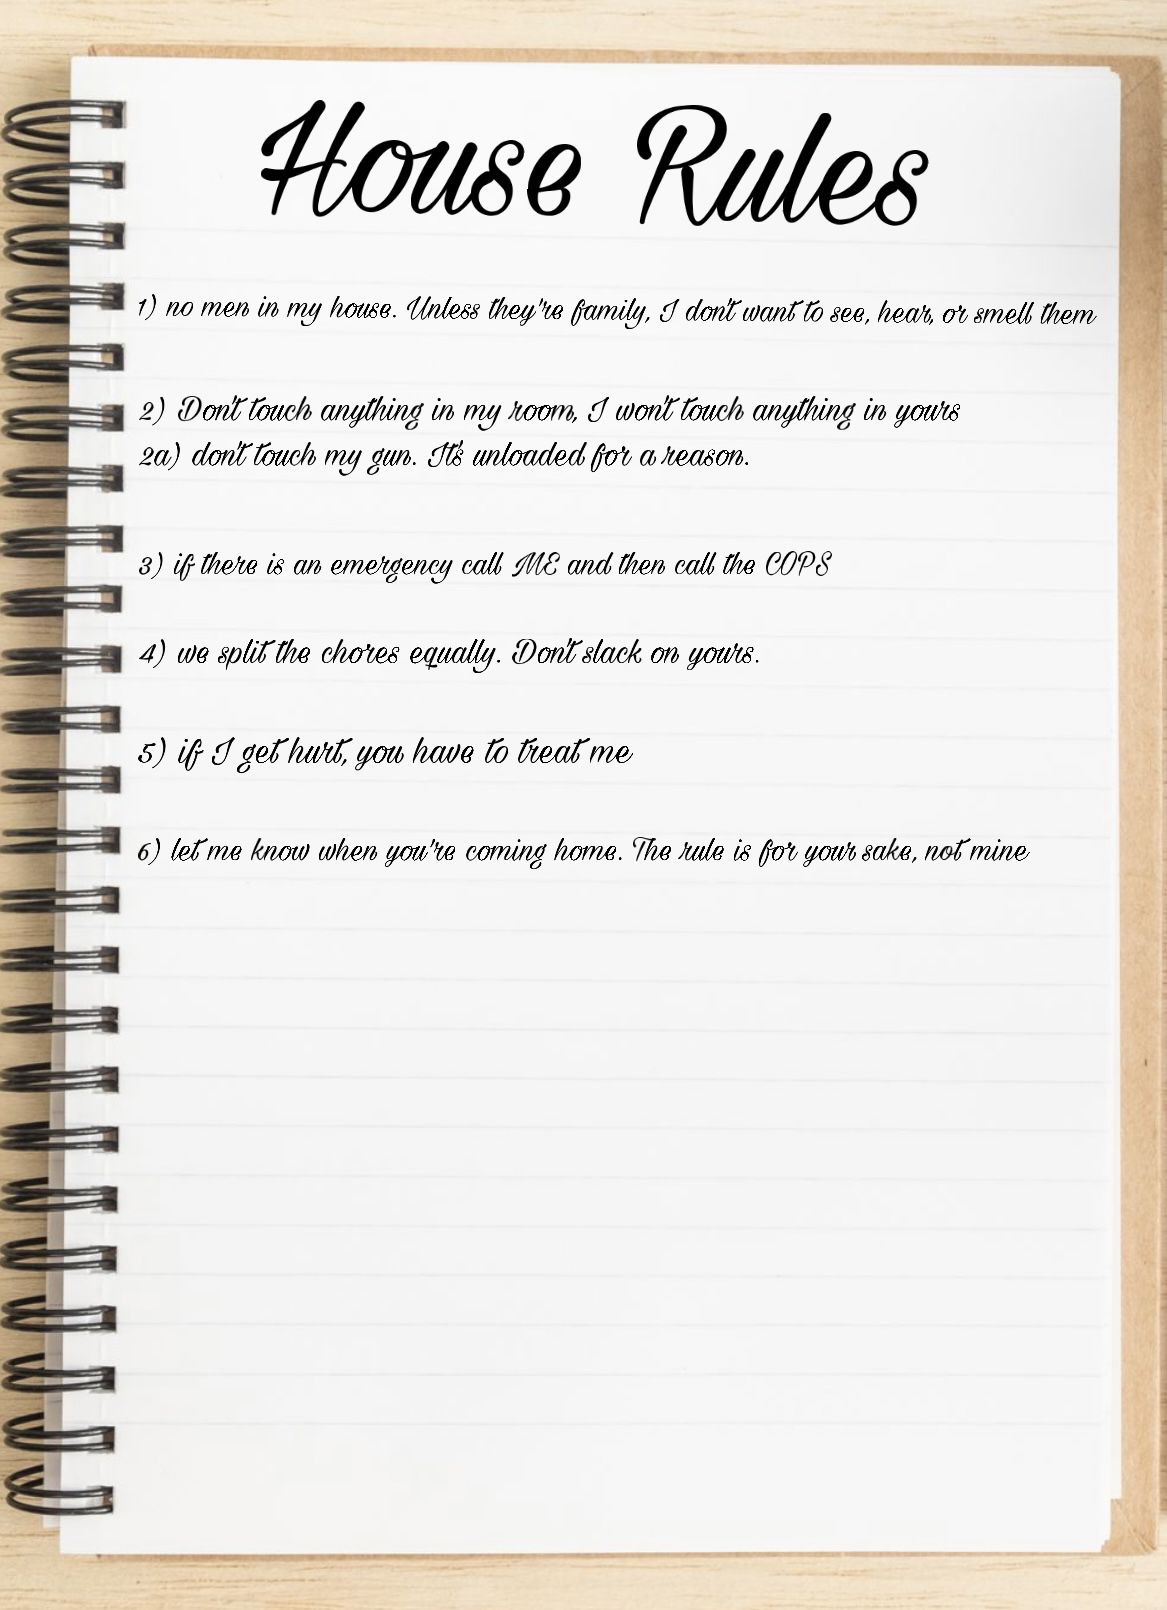 House Rules
1) no men in my house. Unless they're family, I don't want to see, hear, or smell them
2) Don't touch anything in my room, I won't touch anything in yours
2a) don't touch my gun. It's unloaded for a reason.
3) if there is an emergency call ME and then call the COPS
4) we split the chores equally. Don't slack on yours.
5) if I get hurt, you have to treat me
6) let me know when you're coming home. The rule is for your sake, not mine